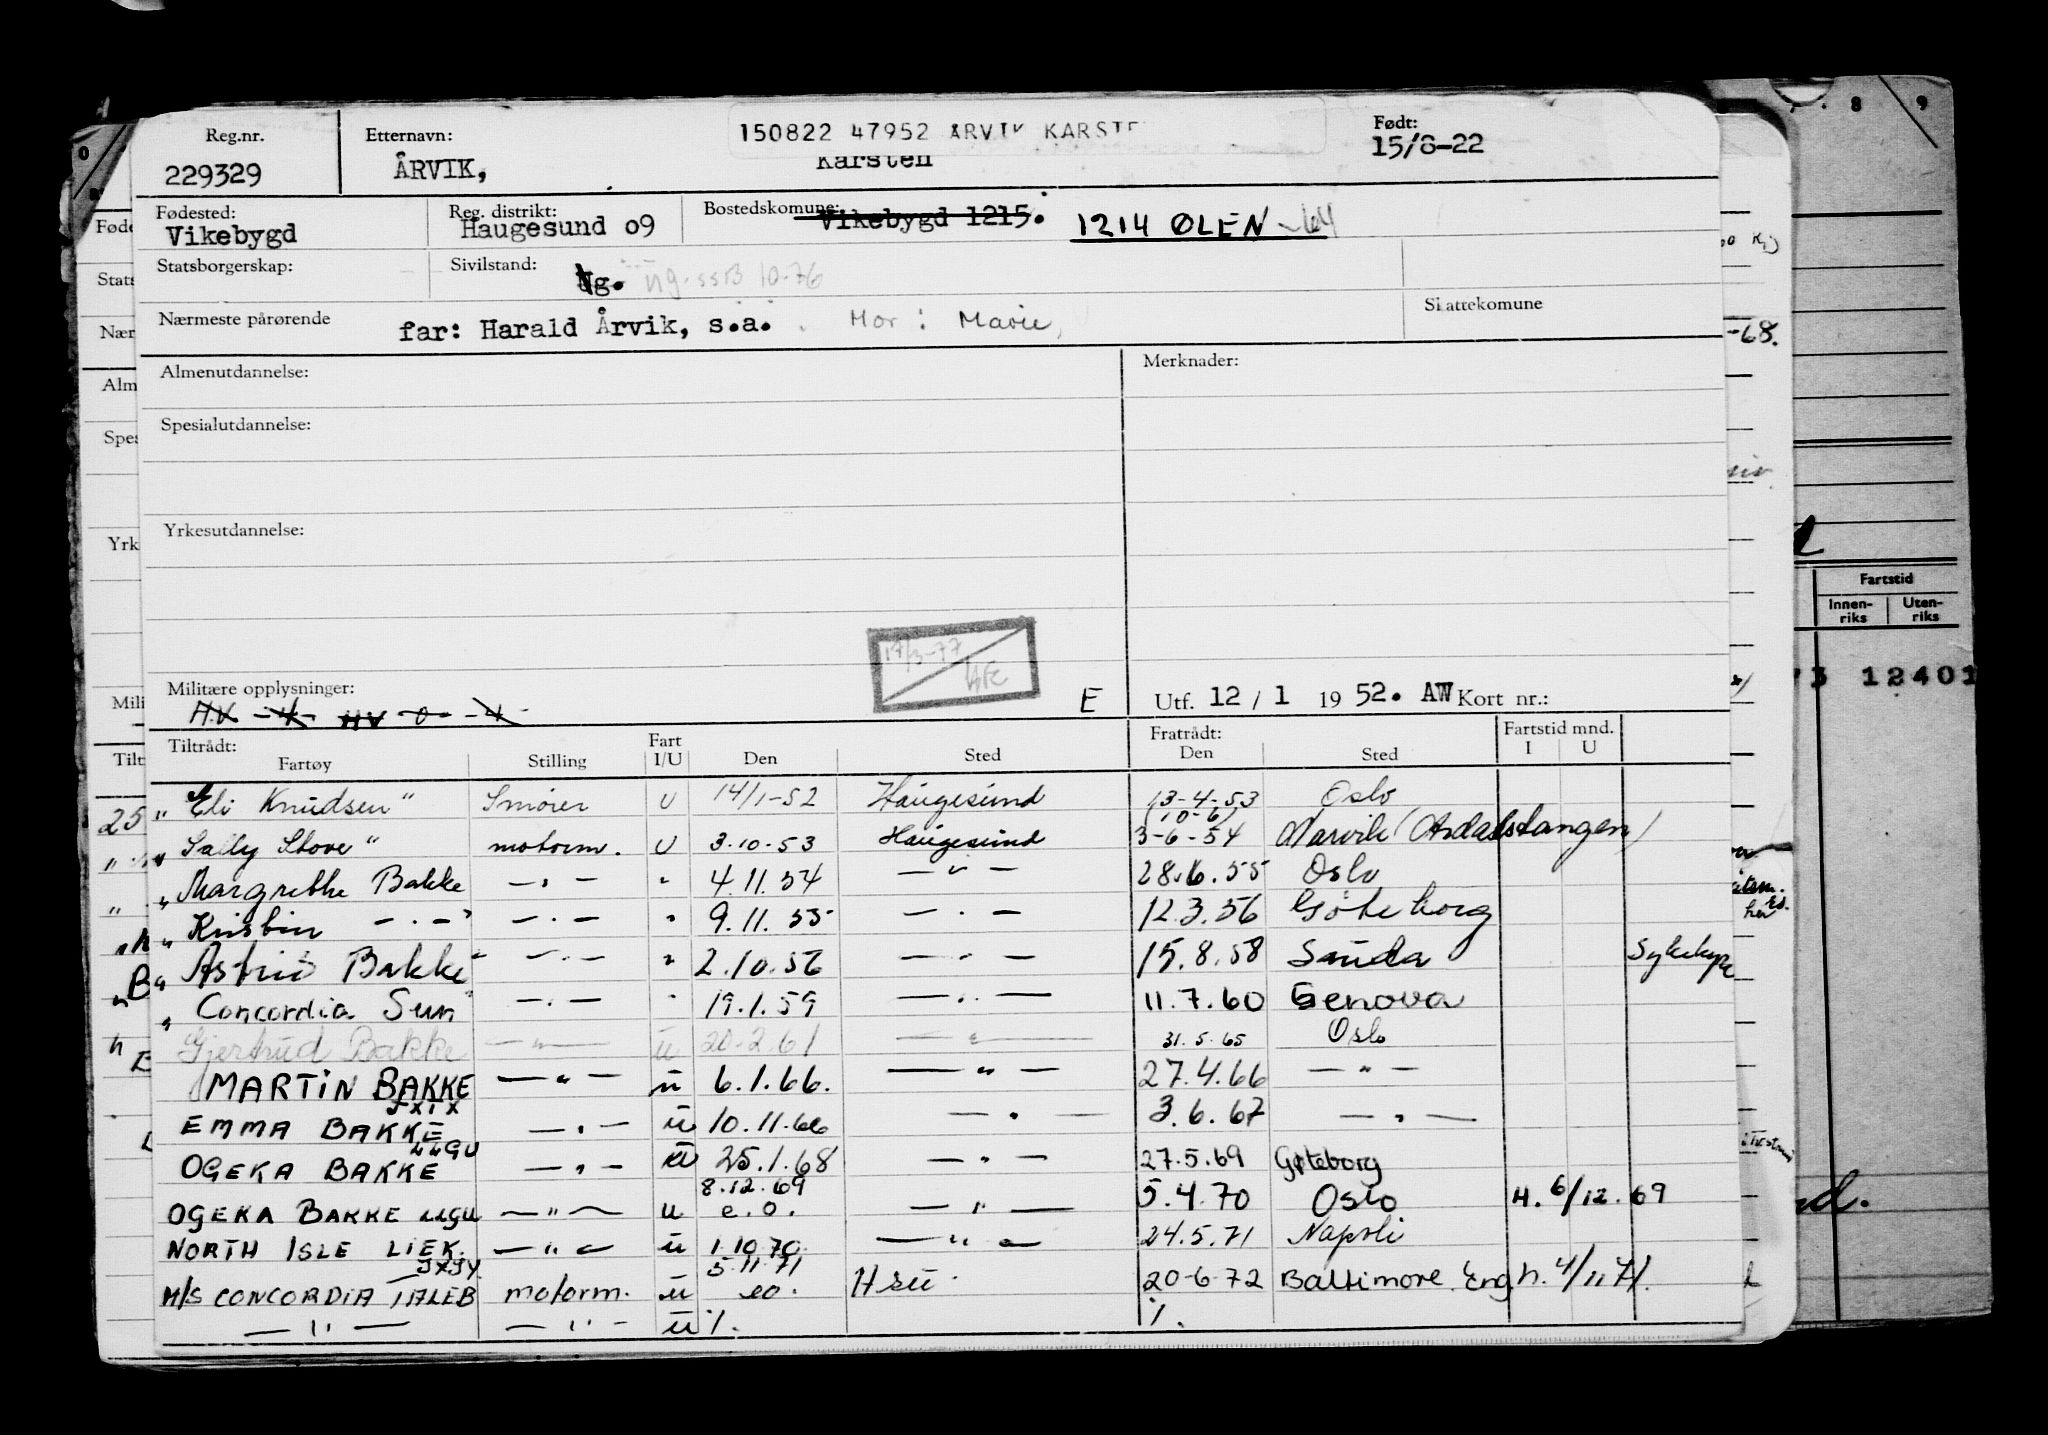 Reg.nr. Etternavn: 150822 47952 ARVIK KARSTE Født:
229329 ÅRVIK, Karsten 15/8-22
Fødested: Reg. distrikt: Bostedskomune:
Vikebygd Haugesund 09 Vikebygd 1215. 1214 ØLEN -64
Statsborgerskap: Sivilstand: Ug. ug. ssB 10-76
Nærmeste pårørende far: Harald Årvik, s.a. Mor: Marie Skattekomune
Almenutdannelse: Merknader:
Spesialutdannelse:
Yrkesutdannelse:
14/3-77
Militære opplysninger: E Utf. 12 / 1 19 52. AW Kort nr.:
HV -4- HV -0- -4-
Tiltrådt: Fratrådt: Fartstid mnd.
Fartøy Stilling Fart I/U Den Sted Den Sted I U
" Eli Knudsen" Smører U 14/1-52 Haugesund 13-4-53 Oslo
(10-6)
" Sally Stove" motorm. U 3.10-53 Haugesund 3-6-54 Narvik (Ardalstangen)
" Margrethe Bakke — " — " 4.11.54 — " — 28.6.55 Oslo
" Kristin — " — " — " — " 9.11.55 — " — 12.3.56 Göteborg
" Astrid Bakke" — " — " 2.10.56 — " — 15.8.58 Sauda
" Concordia Sun" — " — " 19.1.59 — " — 11.7.60 Genova
Gjertrud Bakke — " — u 20-2.61 — " — 31.5.65 Oslo
MARTIN BAKKE — " — u 6.1.66. — " — 27.4.66 — " —
JXIX
EMMA BAKKE — " — u 10.11.66 — " — 3.6.67 — " —
LLGU
OGEKA BAKKE — " — u 25.1.68 — " — 27.5.69 Gøteborg
8.12.69
OGEKA BAKKE LLGU — " — u e.o. — " — 5.4.70 Oslo H. 6/12.69
NORTH ISLE LIEK. — " — u 1.10.70 — " — 24.5.71 Napoli
JXJY 5.11.71
M/S CONCORDIA TALEB motorm. u eo. Hsu. 20-6-72 Baltimore Eng h. 4/11 71.
— " — — " — u %. %.
Fartstid
Innenriks Utenriks
12401